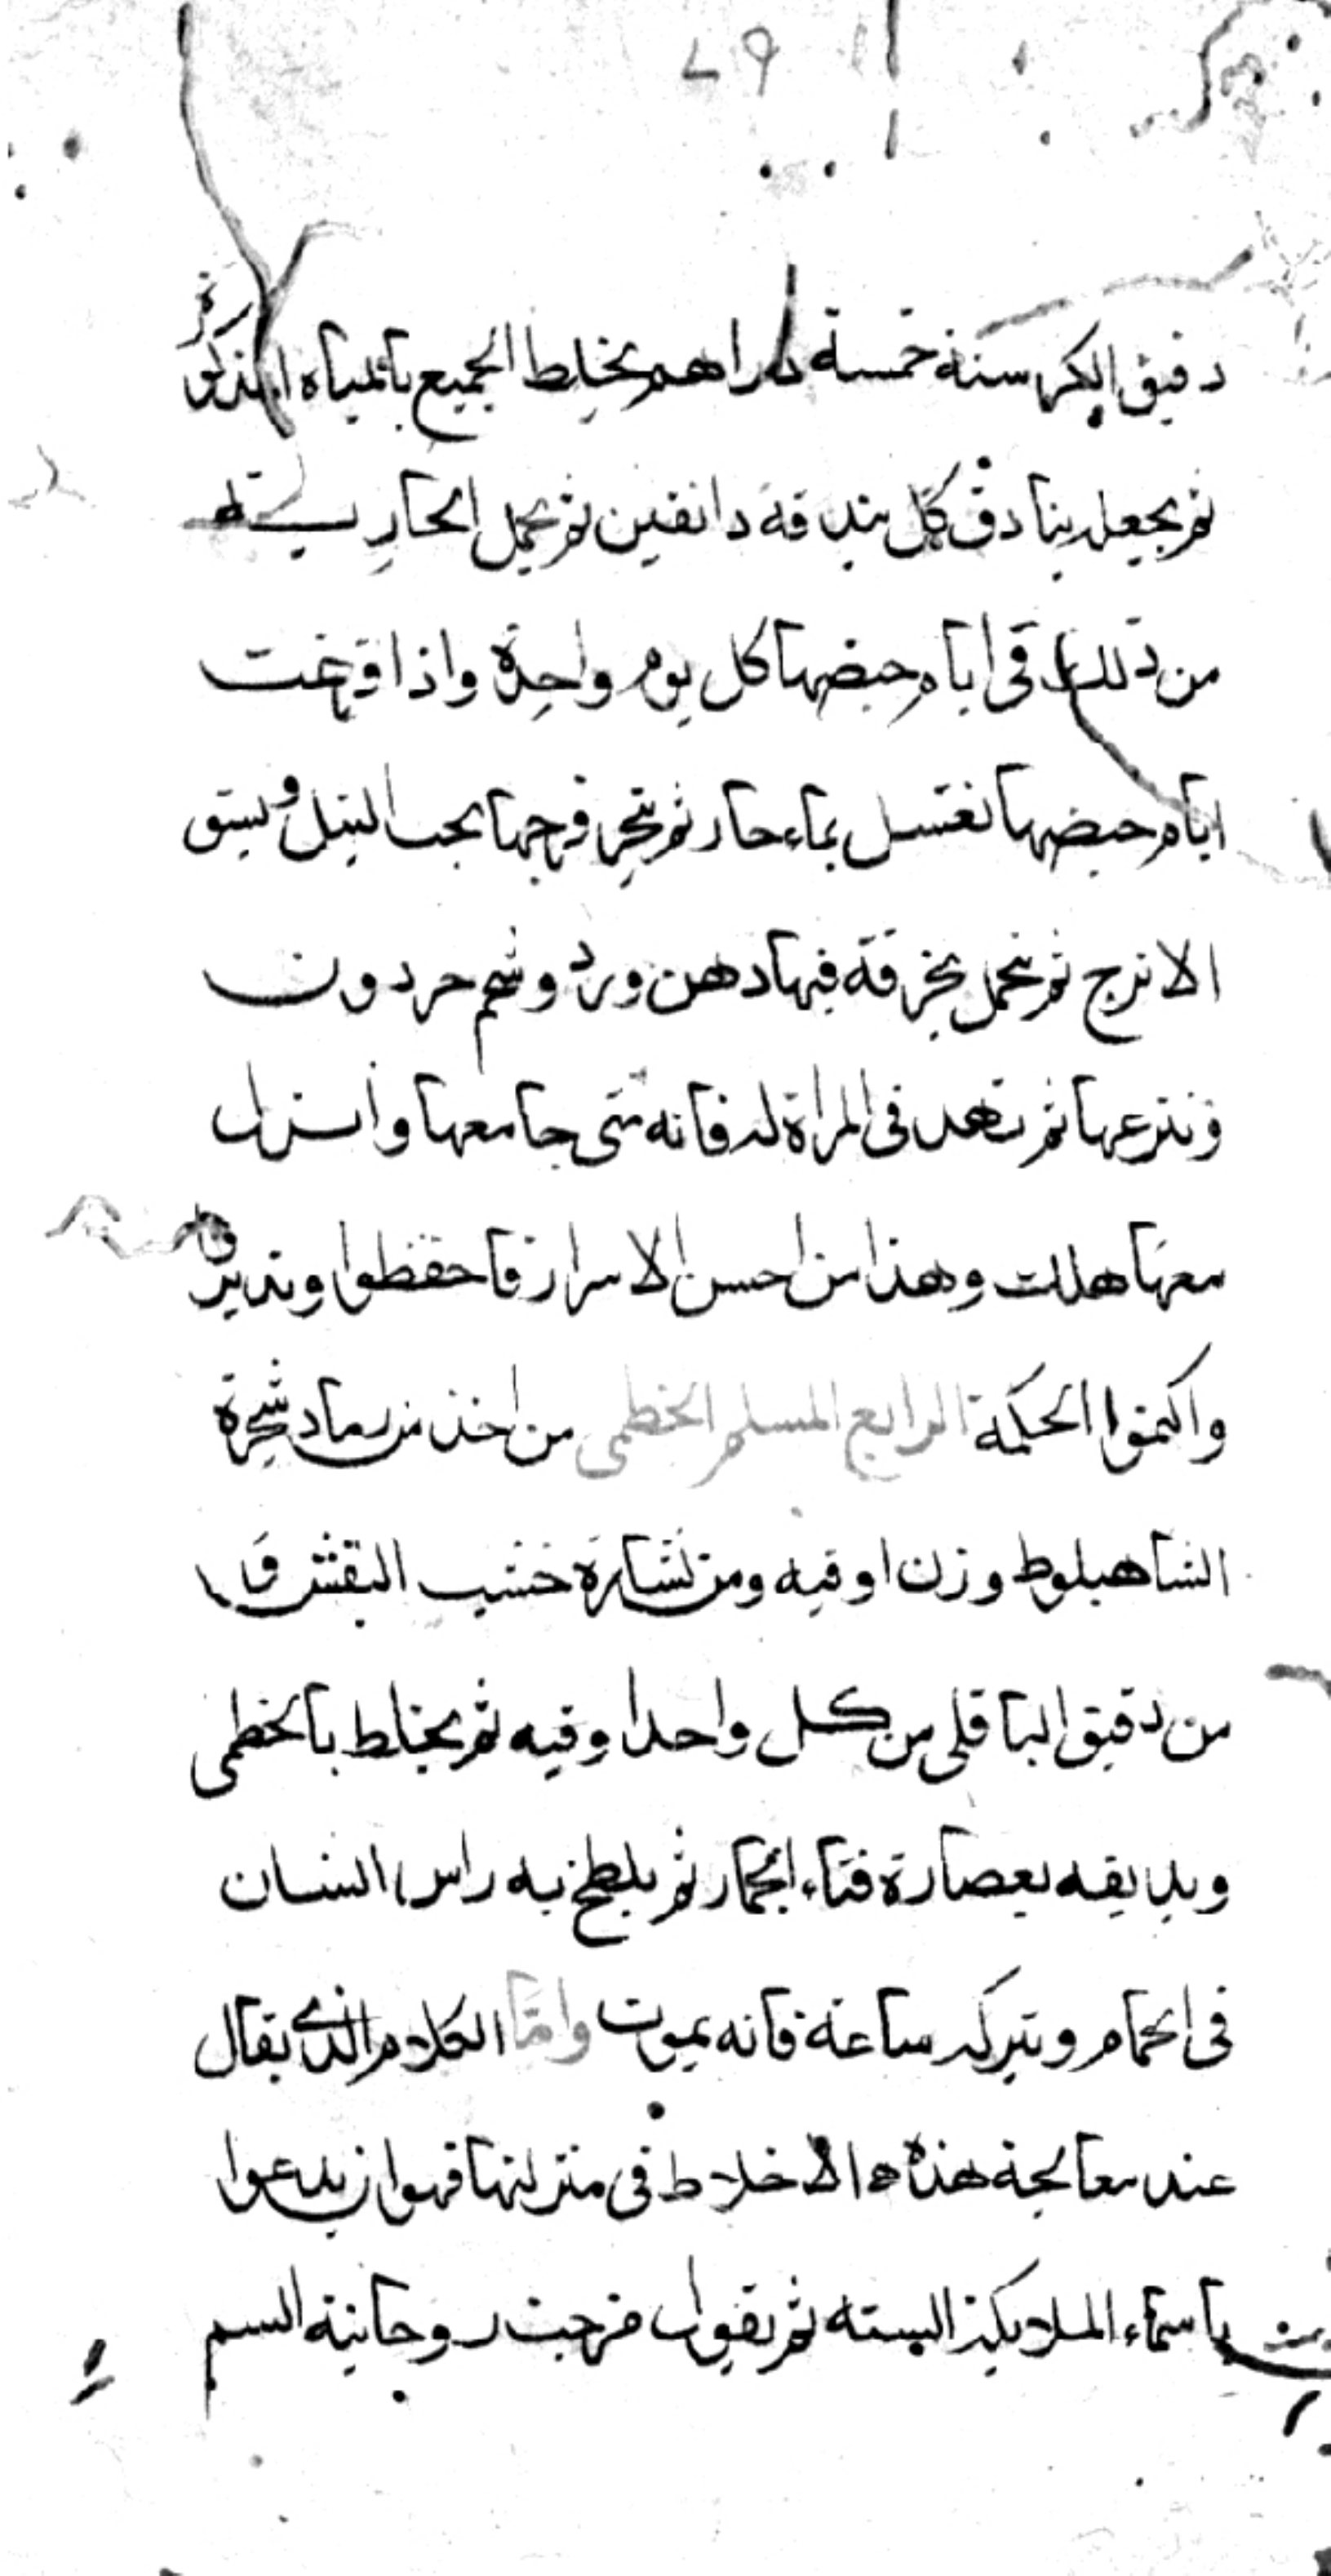 ٧٩
دقيق الكرسنة خمسة دراهم يخلط الجميع بالمياه المذكورة
ثم يجعل بنادق كل بندقة دانقين ثم تحمل الجارية
من ذلك في ايام حيضها كل يوم واحدة واذا فرغت
ايام حيضها تغتسل بماء حار ثم تبخر فرجها بحب النيل و
الاترج ثم تتحمل بخرقة فيها دهن ورد وشحم حردون
وتنزعها ثم تهدى المراة له فانه متى جامعها وانزل
معها هلك وهذا من احسن الاسرار فاحفظوا وتدبروا
واكتموا الحكمة الرابع المسلم الخطمى من اخذ من رماد شجرة
الشاهبلوط وزن اوقيه ومن نشارة خشب البقش و
من دقيق الباقلى من كل واحد اوقيه ثم يخلط بالخطمى
ويديفه بعصارة قثاء الحمار ثم يلطخ به راس انسان
فى الحمام ويتركه ساعة فانه يموت واما الكلام الذى يقال
عند معالجة هذه الاخلاط فى منزلتها فهو ان يدعوا
باسماء الملايكة الستة ثم يقول مزجت روحانية السم